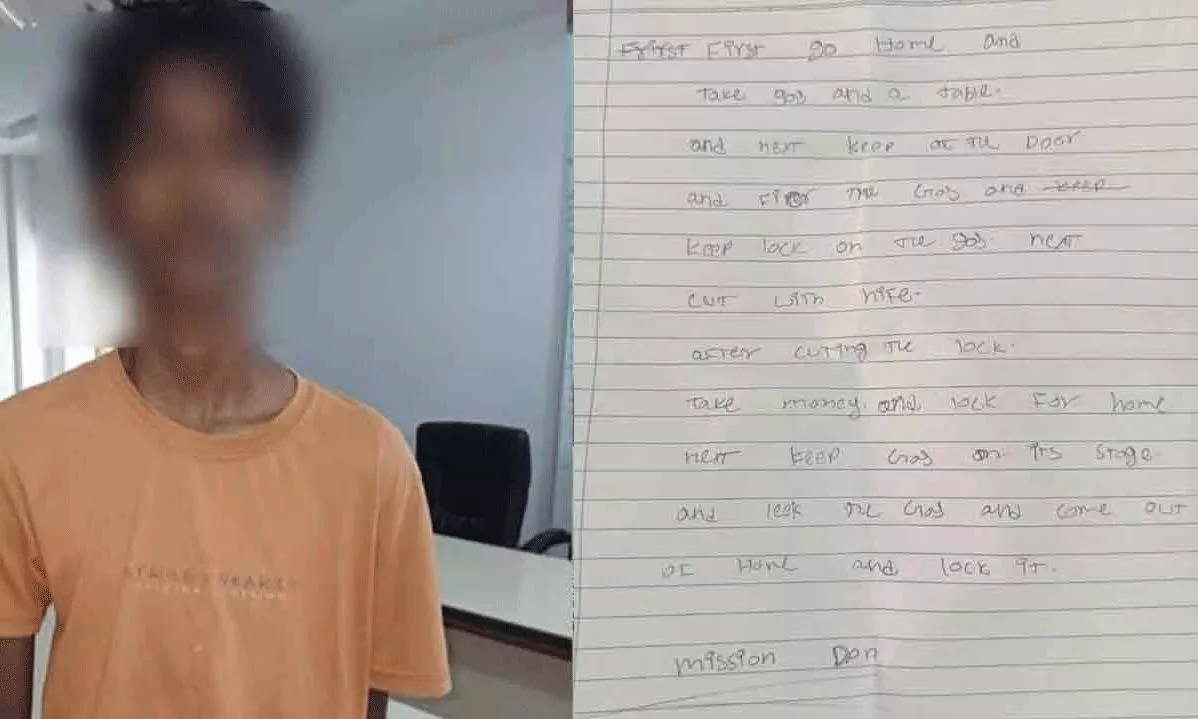 First First go Home and
Take gas and a table.
and next keep at the Door
and Fier the Gas and keep
keep lock on the gas. next
cut with nife.
after cutting the lock.
Take money. and lock for home
next keep Gas on its stage.
and leak the Gas and come out
of Home and lock it.
Mission Don